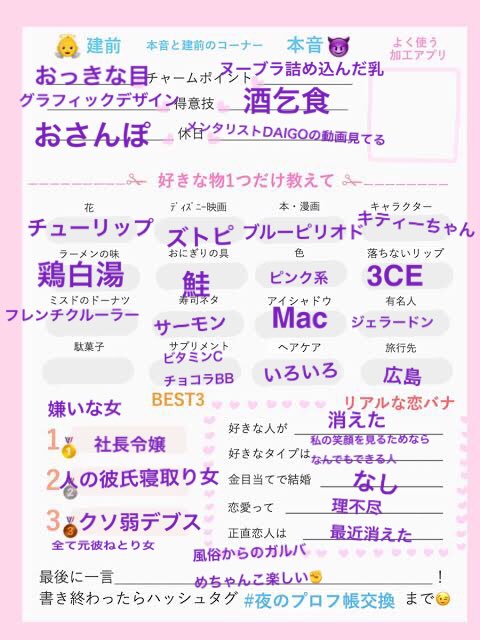 建前 本音と建前のコーナー 本音 よく使う
加工アプリ
おっきな目 チャームポイント ヌーブラ詰め込んだ乳
グラフィックデザイン 得意技 酒乞食
おさんぽ 休日 メンタリストDAIGOの動画見てる
好きな物1つだけ教えて
花 ディズニー映画 本・漫画 キャラクター
チューリップ ズトピ ブルーピリオド キティーちゃん
ラーメンの味 おにぎりの具 色 落ちないリップ
鶏白湯 鮭 ピンク系 3CE
ミスドのドーナツ 寿司ネタ アイシャドウ 有名人
フレンチクルーラー サーモン Mac ジェラードン
駄菓子 サプリメント ヘアケア 旅行先
ビタミンC
チョコラBB いろいろ 広島
嫌いな女 BEST3 リアルな恋バナ
1 社長令嬢
2 人の彼氏寝取り女
3 クソ弱デブス
全て元彼ねとり女
好きな人が 消えた
私の笑顔を見るためなら
好きなタイプは なんでもできる人
金目当てで結婚 なし
恋愛って 理不尽
正直恋人は 最近消えた
風俗からのガルバ
最後に一言 めちゃんこ楽しい✊ !
書き終わったらハッシュタグ #夜のプロフ帳交換 まで😉